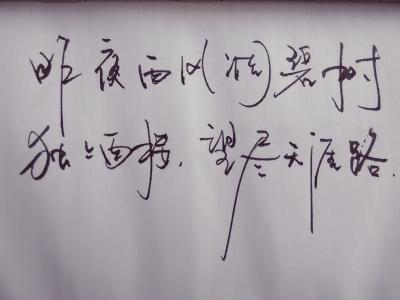 昨夜西风(凋)碧树
独上高楼,望尽天涯路.